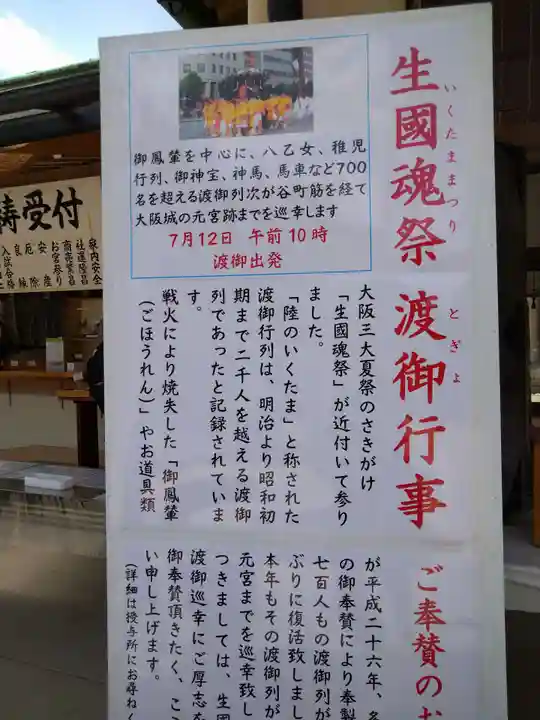 生國魂祭 渡御行事 ご奉賛の
いくたままつり
とぎょ
御鳳輦を中心に、八乙女、稚児
行列、御神宝、神馬、馬車など700
名を超える渡御列次が谷町筋を経て
大阪城の元宮跡までを巡幸します
7月12日 午前10時
渡御出発
大阪三大夏祭のさきがけ
「生國魂祭」が近付いて参り
ました。
「陸のいくたま」と称された
渡御行列は、明治より昭和初
期まで二千人を越える渡御
列であったと記録されていま
す。
戦火により焼失した「御鳳輦
(ごほうれん)」やお道具類
が平成二十六年、
の御奉賛により奉製
七百人もの渡御列が
ぶりに復活致しまし
本年もその渡御列が
元宮までを巡幸致し
つきましては、生國
渡御巡幸にご厚志を
御奉賛頂きたく、ここ
い申し上げます。
(詳細は授与所にお尋ねく
祷受付
家内安全
社運隆昌
商売繁昌
お宮参り
安産
厄除
良縁